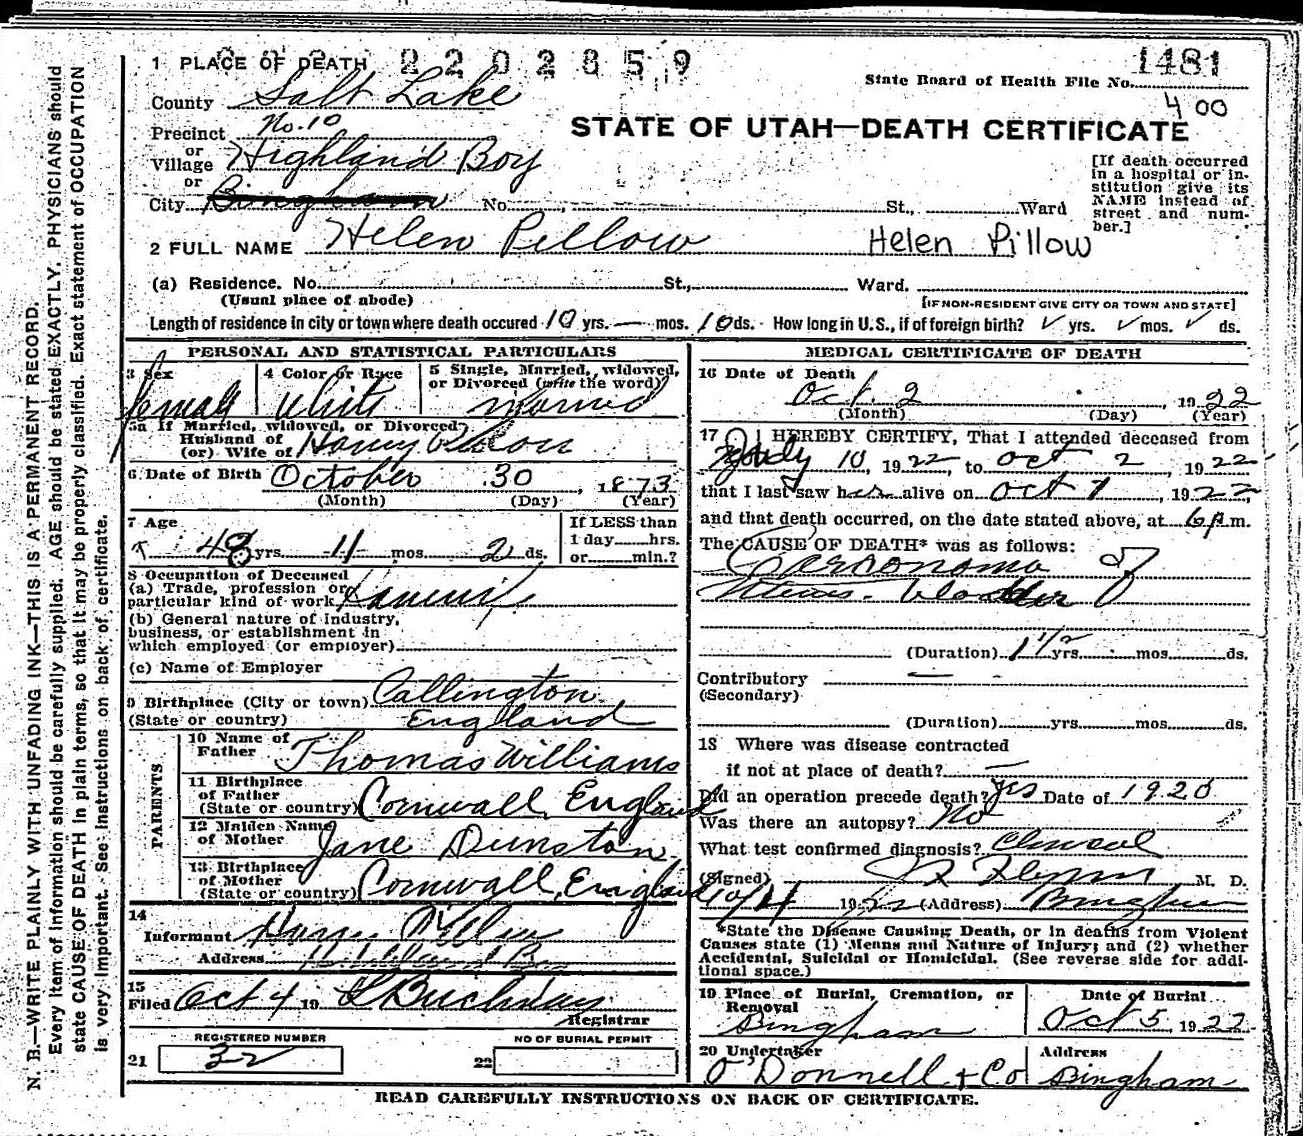 1 PLACE OF DEATH 2202859
1481
State Board of Health File No.
400
County Salt Lake
Precinct No. 10
or
Village Highland Boy
or
City Bingham No. St., Ward
STATE OF UTAH—DEATH CERTIFICATE
[If death occurred
in a hospital or in-
stitution give its
NAME instead of
street and num-
ber.]
2 FULL NAME Helen Pillow Helen Pillow
(a) Residence. No. St., Ward.
(Usual place of abode)
[IF NON-RESIDENT GIVE CITY OR TOWN AND STATE]
Length of residence in city or town where death occured 10 yrs. — mos. 10 ds. How long in U.S., if of foreign birth? ✓ yrs. ✓ mos. ✓ ds.
PERSONAL AND STATISTICAL PARTICULARS
3 Sex
female
4 Color or Race
White
5 Single, Married, widowed,
or Divorced (write the word)
Married
5a If Married, widowed, or Divorced
Husband of
(or) Wife of Harry Pillow
6 Date of Birth October 30, 1873
(Month) (Day) (Year)
7 Age
48 yrs. 11 mos. 2 ds.
If LESS than
1 day hrs.
or min.?
8 Occupation of Deceased
(a) Trade, profession or
particular kind of work Housewife
(b) General nature of industry,
business, or establishment in
which employed (or employer)
(c) Name of Employer
9 Birthplace (City or town) Callington
(State or country) England
PARENTS
10 Name of
Father Thomas Williams
11 Birthplace
of Father
(State or country) Cornwall, England
12 Maiden Name
of Mother Jane Dunston
13 Birthplace
of Mother
(State or country) Cornwall, England
14
Informant Harry Pillow
Address Highland Boy
15
Filed Oct 4 19
Registrar
REGISTERED NUMBER
21 32
NO OF BURIAL PERMIT
22
MEDICAL CERTIFICATE OF DEATH
16 Date of Death
Oct. 2, 1922
(Month) (Day) (Year)
17 I HEREBY CERTIFY, That I attended deceased from
July 10, 1922 to Oct 2, 1922
that I last saw her alive on Oct 1, 1922,
and that death occurred, on the date stated above, at 6 p m.
The CAUSE OF DEATH* was as follows:
Carconoma of
Uterus. bladder
(Duration) 1 1/2 yrs. mos. ds.
Contributory —
(Secondary)
(Duration) yrs. mos. ds.
18 Where was disease contracted
if not at place of death? —
Did an operation precede death? yes Date of 1920
Was there an autopsy? No
What test confirmed diagnosis? Clinical
(Signed) M. D.
1922 (Address) Bingham
*State the Disease Causing Death, or in deaths from Violent
Causes state (1) Means and Nature of Injury; and (2) whether
Accidental, Suicidal or Homicidal. (See reverse side for addi-
tional space.)
19 Place of Burial, Cremation, or
Removal
Bingham
Date of Burial
Oct 5, 1922
20 Undertaker
O'Donnell & Co
Address
Bingham
READ CAREFULLY INSTRUCTIONS ON BACK OF CERTIFICATE.
N. B.—WRITE PLAINLY WITH UNFADING INK—THIS IS A PERMANENT RECORD.
Every item of information should be carefully supplied. AGE should be stated EXACTLY. PHYSICIANS should
state CAUSE OF DEATH in plain terms, so that it may be properly classified. Exact statement of OCCUPATION
is very important. See instructions on back of certificate.